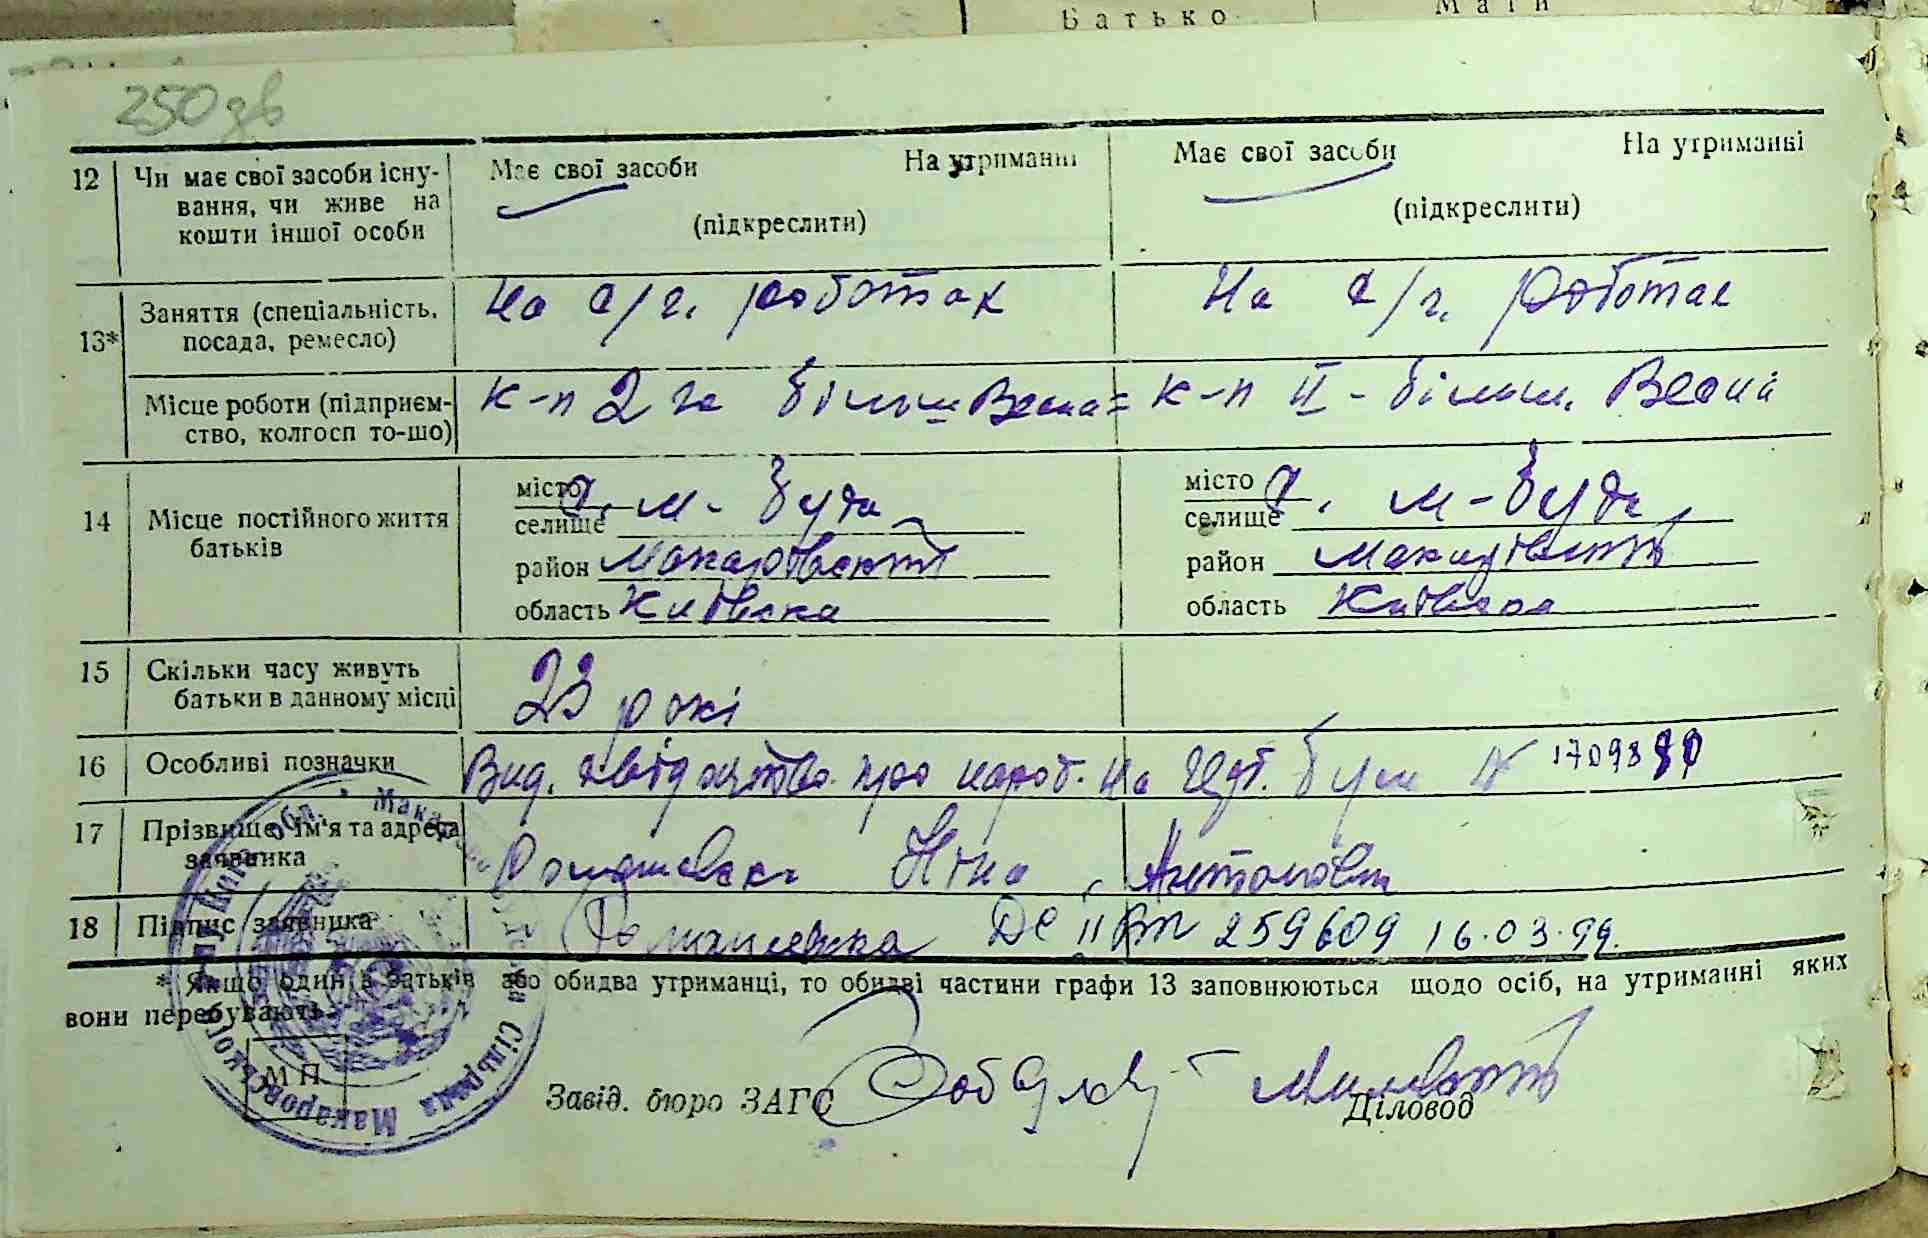 Батько Мати
250 зв
12 Чи має свої засоби існу- Має свої засоби На утриманні Має свої засоби На утриманні
вання, чи живе на (підкреслити) (підкреслити)
кошти іншої особи
13* Заняття (спеціальність, На с/г. роботах На с/г. роботах
посада, ремесло)
Місце роботи (підприєм- к-п 2 га більш Весна= к-п ІІ - більш. Весна
ство, колгосп то-що)
14 Місце постійного життя місто с. М-Буда місто с. М-Буда
батьків селище селище
район Макарівський район Макарівський
область Київська область Київська
15 Скільки часу живуть 23 рокі
батьки в данному місці
16 Особливі позначки Вид. свідоцтво про народ. на №
17 Прізвище, ім'я та адреса Ніна Антонівна
заявника
18 Підпис заявника 259609 16.03.99.
* Якщо один з батьків або обидва утриманці, то обидві частини графи 13 заповнюються щодо осіб, на утриманні яких
вони перебувають.
М П
Завід. бюро ЗАГС Діловод